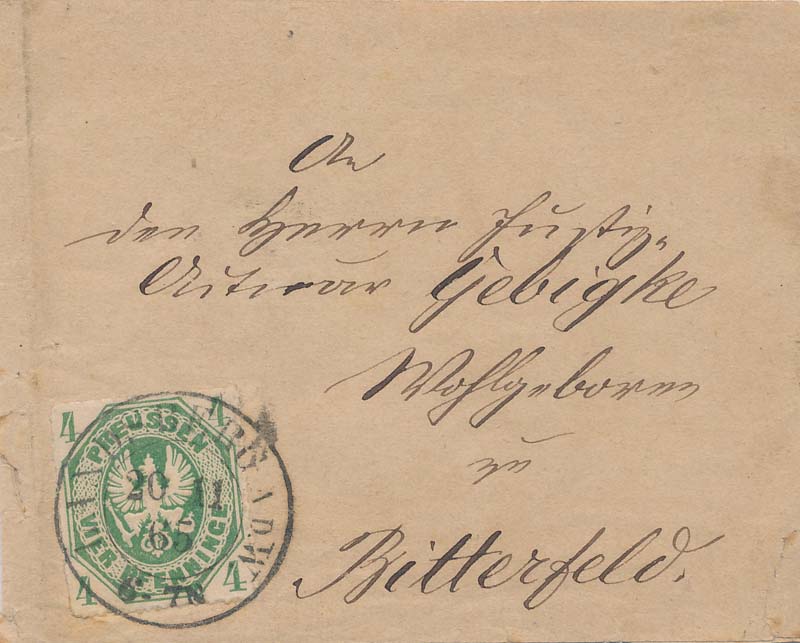 An
den Herrn Justiz-
Actuar Gebigke
Wohlgeboren
zu
Bitterfeld.
4 4
PREUSSEN
VIER PFENNINGE
4 4
20 11
65